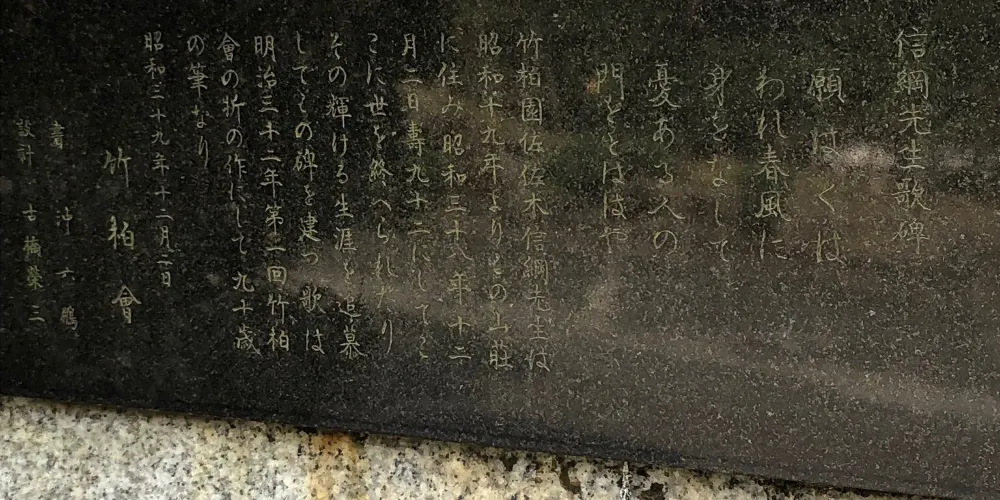 信綱先生歌碑
願はくは
われ春風に
身をなして
憂ある人の
門をとはばや
竹柏園佐佐木信綱先生は
昭和十九年よりこの山荘
に住み昭和三十八年十二
月二日壽九十二にしてこ
こに世を終へられたり
その輝ける生涯を追慕
してこの碑を建つ歌は
明治三十二年第二回竹柏
會の折の作にして九十歳
の筆なり
昭和三十九年十二月二日
竹柏會
書 沖六鵬
設計 古橋榮三